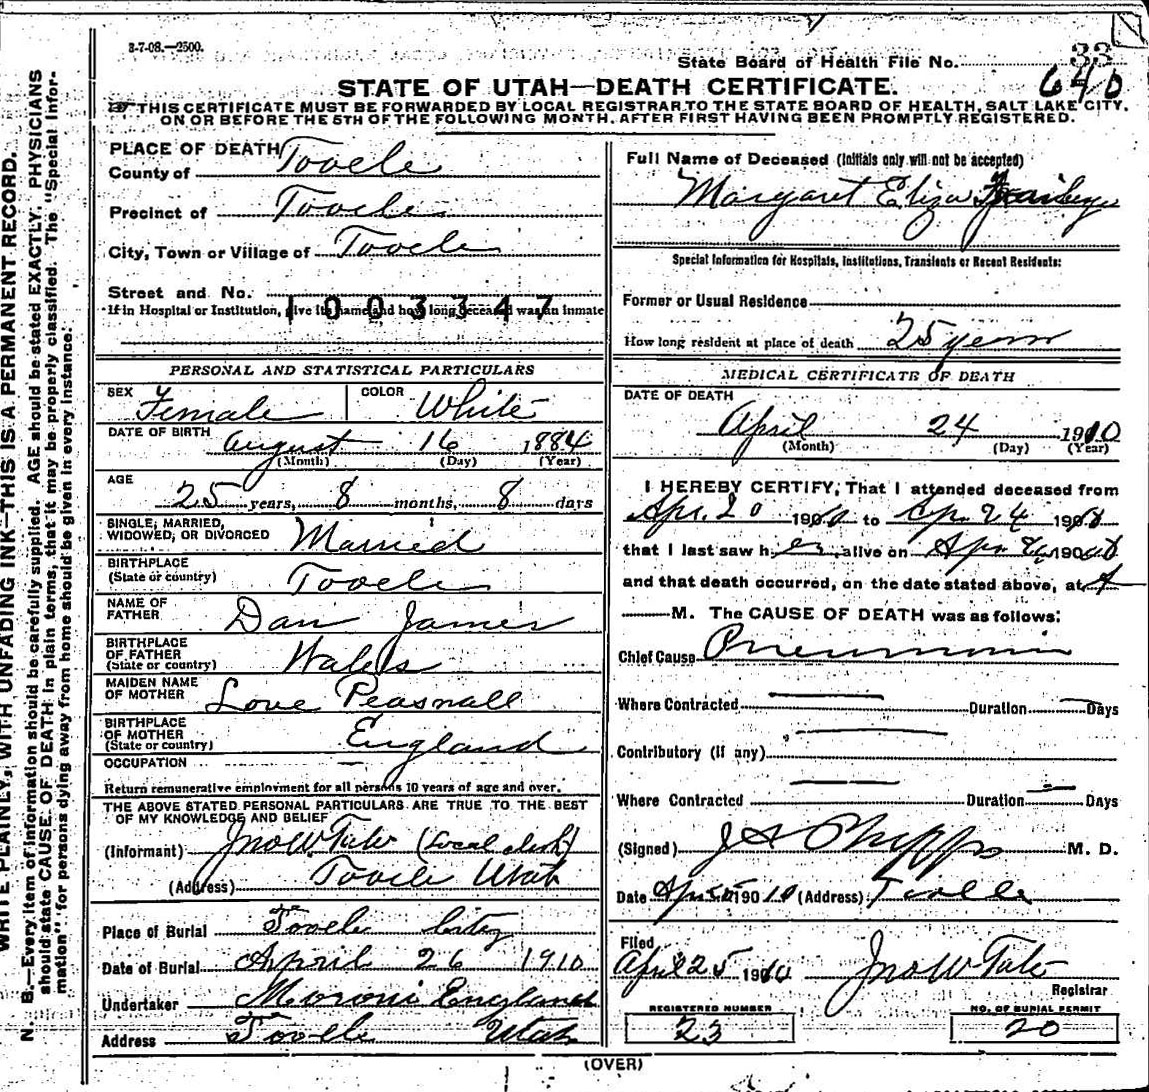 3-7-08.—2500.
State Board of Health File No. 33
640
STATE OF UTAH—DEATH CERTIFICATE.
THIS CERTIFICATE MUST BE FORWARDED BY LOCAL REGISTRAR TO THE STATE BOARD OF HEALTH, SALT LAKE CITY,
ON OR BEFORE THE 5TH OF THE FOLLOWING MONTH, AFTER FIRST HAVING BEEN PROMPTLY REGISTERED.
WRITE PLAINLY, WITH UNFADING INK—THIS IS A PERMANENT RECORD.
N. B.—Every item of information should be carefully supplied. AGE should be stated EXACTLY. PHYSICIANS
should state CAUSE OF DEATH in plain terms, that it may be properly classified. The "Special Infor-
mation" for persons dying away from home should be given in every instance.
PLACE OF DEATH
County of Tooele
Precinct of Tooele
City, Town or Village of Tooele
Street and No.
1003347
If in Hospital or Institution, give its name and how long deceased was an inmate
PERSONAL AND STATISTICAL PARTICULARS
SEX Female COLOR White
DATE OF BIRTH August 16 1884
(Month) (Day) (Year)
AGE
25 years, 8 months, 8 days
SINGLE, MARRIED,
WIDOWED, OR DIVORCED Married
BIRTHPLACE
(State or country) Tooele
NAME OF
FATHER Dan James
BIRTHPLACE
OF FATHER
(State or country) Wales
MAIDEN NAME
OF MOTHER Love Peasnall
BIRTHPLACE
OF MOTHER
(State or country) England
OCCUPATION
Return remunerative employment for all persons 10 years of age and over.
THE ABOVE STATED PERSONAL PARTICULARS ARE TRUE TO THE BEST
OF MY KNOWLEDGE AND BELIEF
(Informant) Jno W Tate (Local clerk)
(Address) Tooele Utah
Place of Burial Tooele City
Date of Burial April 26 1910
Undertaker Moroni England
Address Tooele Utah
Full Name of Deceased (Initials only will not be accepted)
Margaret Eliza
Special Information for Hospitals, Institutions, Transients or Recent Residents:
Former or Usual Residence
How long resident at place of death 25 years
MEDICAL CERTIFICATE OF DEATH
DATE OF DEATH
April 24 1910
(Month) (Day) (Year)
I HEREBY CERTIFY, That I attended deceased from
Apr. 20 190 to Apr 24 190
that I last saw her alive on Apr 190
and that death occurred, on the date stated above, at
M. The CAUSE OF DEATH was as follows:
Chief Cause Pneumonia
Where Contracted Duration Days
Contributory (if any)
Where Contracted Duration Days
(Signed) J A Phipps M. D.
Date Apr 25 1910 (Address) Tooele
Filed
April 25 1910 Jno W Tate
Registrar
REGISTERED NUMBER
23
NO. OF BURIAL PERMIT
20
(OVER)